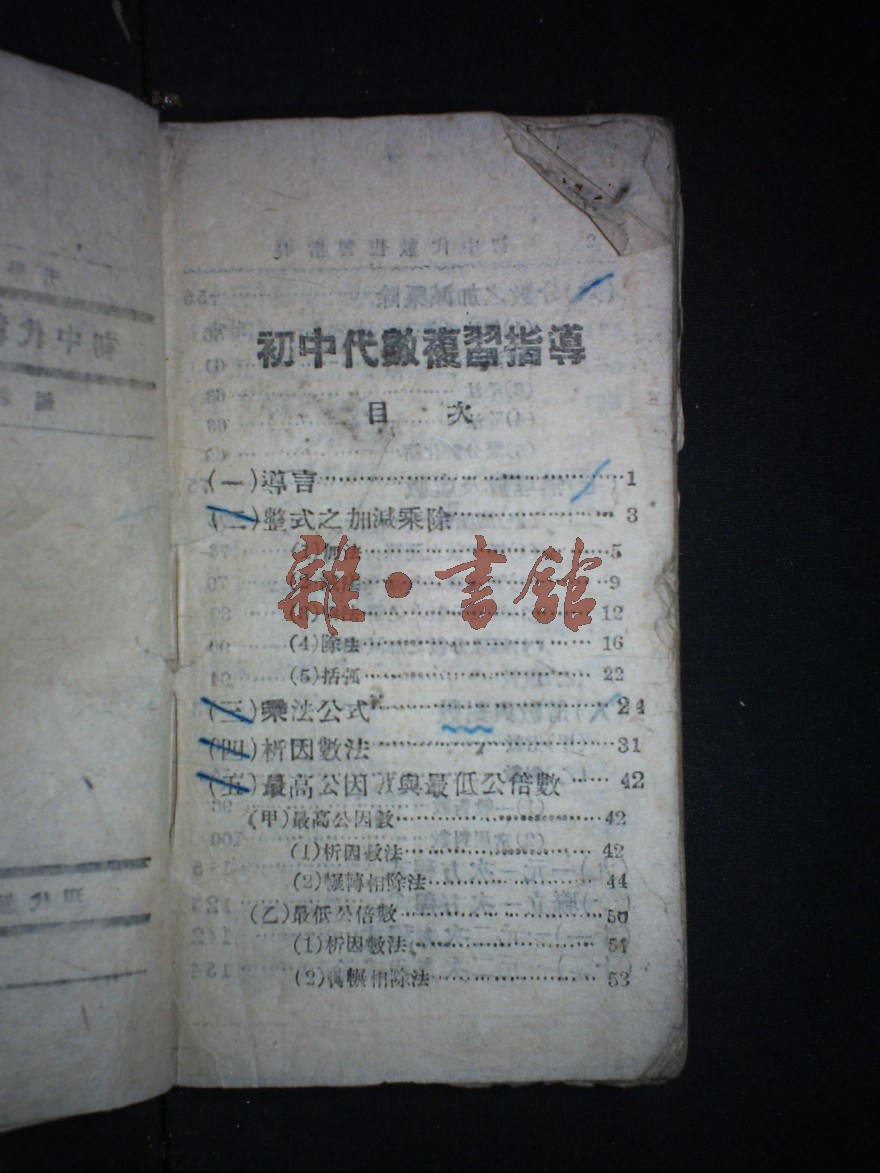 初中代數複習指導
目 次
(一)導言 1
(二)整式之加減乘除 3
加法 5
9
12
(4)除法 16
(5)括弧 22
(三)乘法公式 24
(四)析因數法 31
(五)最高公因數與最低公倍數 42
(甲)最高公因數 42
(1)析因數法 42
(2)輾轉相除法 44
(乙)最低公倍數 50
(1)析因數法 51
(2)輾相除法 53
雜·書館
初中代